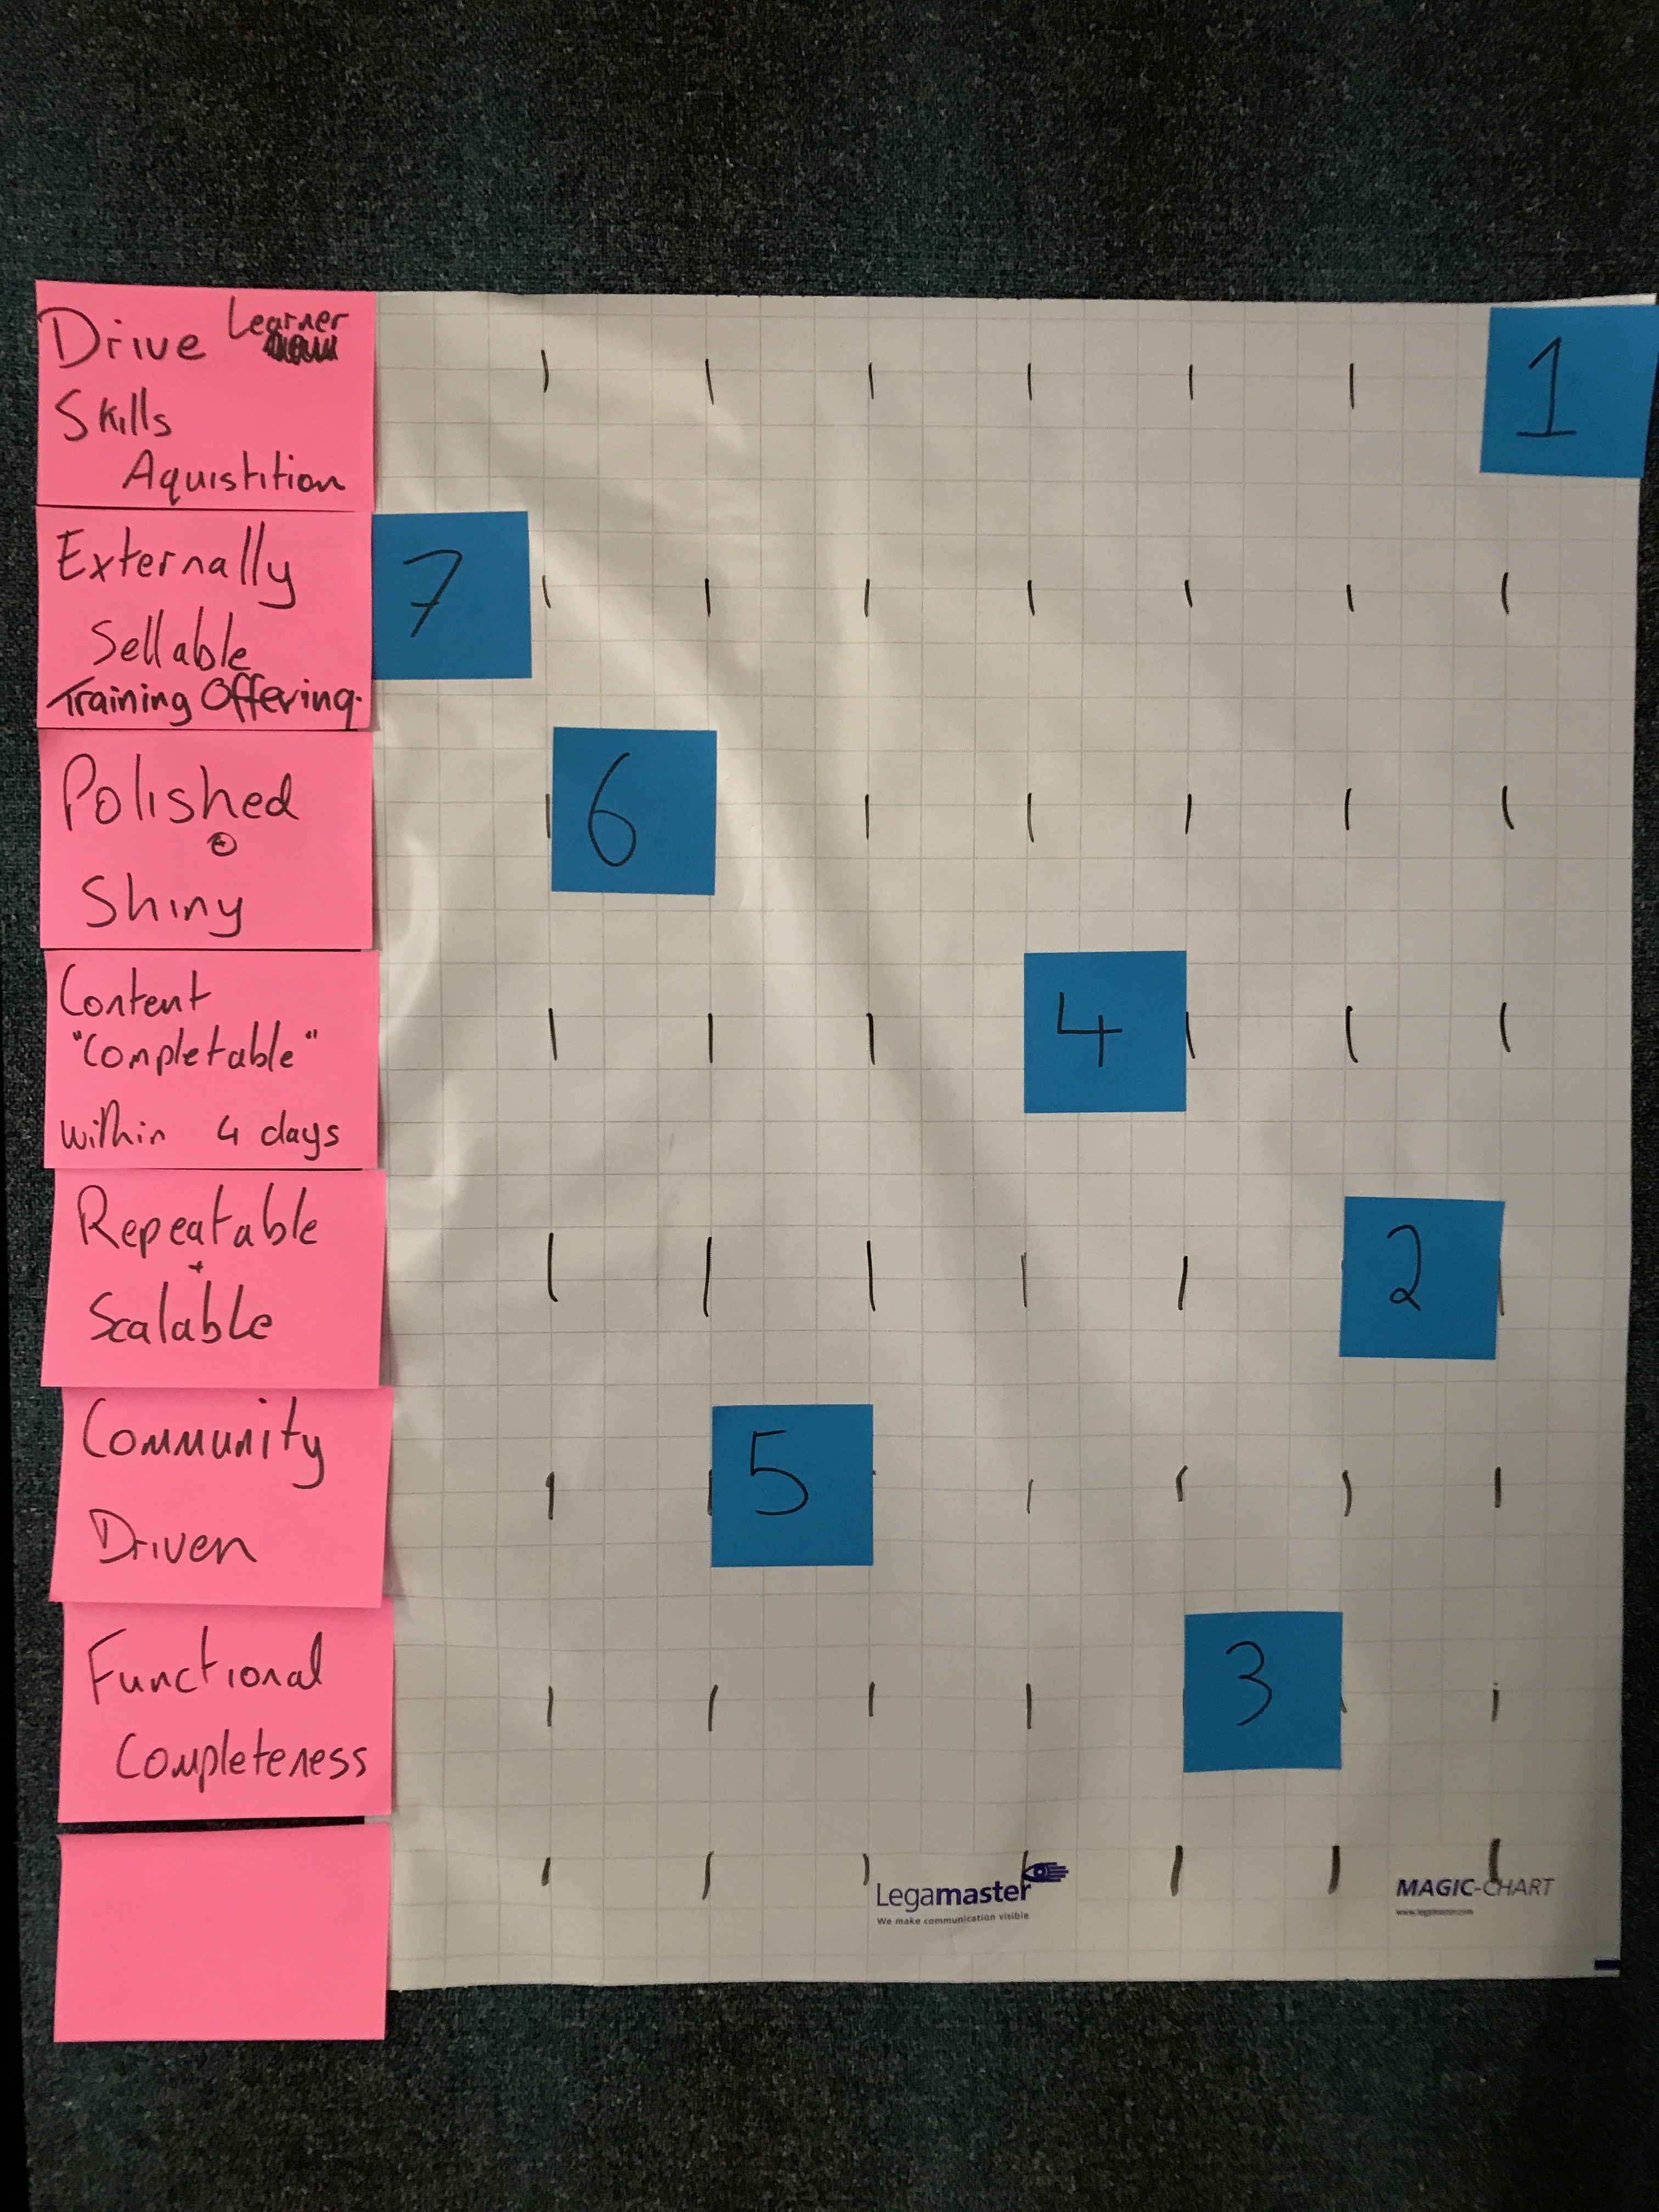 Drive Learner
Skills
Aquistition
1
Externally
Sellable
Training Offering.
7
Polished
Shiny
6
Content
"Completable"
within 4 days
4
Repeatable
+
Scalable
2
Community
Driven
5
Functional
Completeness
3
Legamaster
We make communication visible
MAGIC-CHART
www.legamaster.com